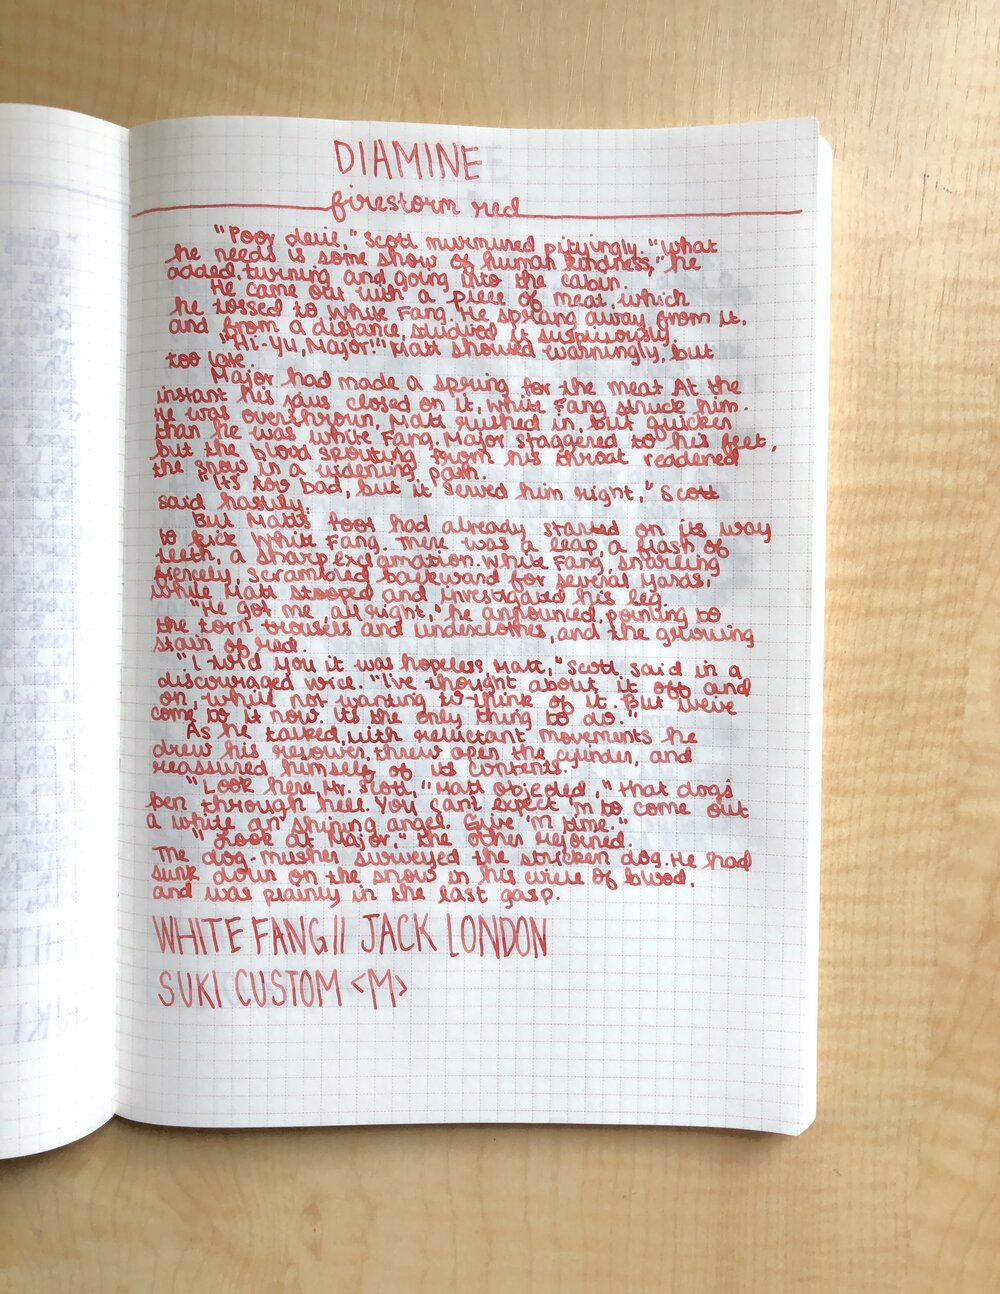 DIAMINE
firestorm red
"Poor devil," Scott murmured pityingly. "What
he needs is some show of human kindness," he
added, turning and going into the cabin.
He came out with a piece of meat, which
he tossed to White Fang. He sprang away from it,
and from a distance studied it suspiciously.
"Hi-yu, Major!" Matt shouted warningly, but
too late.
Major had made a spring for the meat. At the
instant his jaws closed on it, White Fang struck him.
He was overthrown. Matt rushed in, but quicker
than he was White Fang. Major staggered to his feet,
but the blood spouting from his throat reddened
the snow in a widening path.
"It's too bad, but it served him right," Scott
said hastily.
But Matt's foot had already started on its way
to kick White Fang. There was a leap, a flash of
teeth, a sharp exclamation. White Fang, snarling
fiercely, scrambled backward for several yards,
while Matt stooped and investigated his leg.
"He got me all right," he announced, pointing to
the torn trousers and underclothes, and the growing
stain of red.
"I told you it was hopeless, Matt," Scott said in a
discouraged voice. "I've thought about it off and
on, while not wanting to think of it. But we've
come to it now. It's the only thing to do."
As he talked, with reluctant movements he
drew his revolver, threw open the cylinder, and
reassured himself of its contents.
"Look here, Mr. Scott," Matt objected, "that dog's
ben through hell. You can't expect 'm to come out
a white an' shining angel. Give 'm time."
"Look at Major," the other rejoined.
The dog-musher surveyed the stricken dog. He had
sunk down on the snow in his circle of blood,
and was plainly in the last gasp.
WHITE FANG || JACK LONDON
SUKI CUSTOM <M>